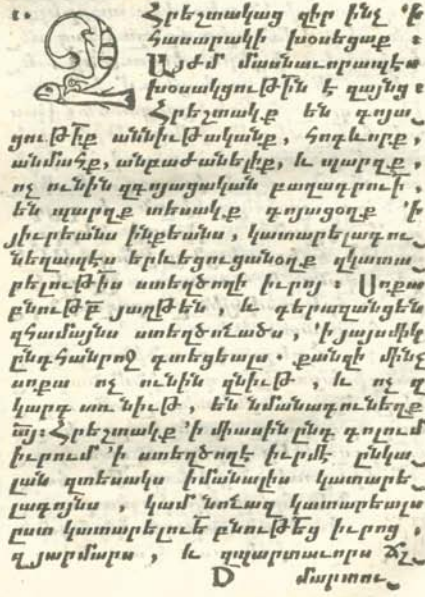 Հրեշտակաց զիր ինչ 'ի
հասարակի խօսեցաք :
Այժմ մասնաւորապէս
խօսակցութիւն է զայնց :
Հրեշտակք են գոյա
ցութիք աննիւթականք, հոգևորք,
անմահք, անբաժանելիք, և պարզք,
ոչ ունին զգոյացական բաղադրուի,
են պարզք տեսակք գոյացօղք 'ի
յիւրեանս ինքեանս, կատարելագու
նեղապէս երևեցուցանօղք զկատա
րելութիս ստեղծողի իւրոյ : Սոքա
բնութբ յաղթեն, և գերազանցեն
զհամայնս ստեղծուածս, 'ի յայսմիկ
ընդհանրոջ գտեցեալս . քանզի մինչ
սոքա ոչ ունին զնիւթ, և ոչ զ
կարգ առ նիւթ, են նմանագունեղք
այ: Հրեշտակք 'ի միասին ընդ գոլում
իւրում 'ի ստեղծողէ իւրմէ ընկա
լան զտեսակս իմանալիս կատարե
լագոյնս, կամ նուազ կատարեալս
ըստ կատարելուե բնութեց իւրոց,
զյարմարս, և զզարտաւորս ճշ
D մարտու